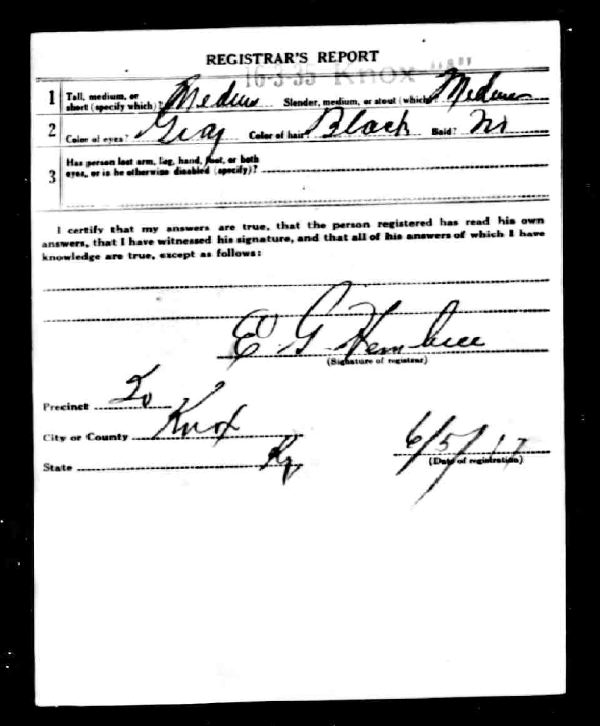 REGISTRAR'S REPORT
16-3-35 Knox "A"
1 Tall, medium, or short (specify which)? Medium Slender, medium, or stout (which)? Medium
2 Color of eyes? Gray Color of hair? Black Bald? No
3 Has person lost arm, leg, hand, foot, or both
eyes, or is he otherwise disabled (specify)?
I certify that my answers are true, that the person registered has read his own
answers, that I have witnessed his signature, and that all of his answers of which I have
knowledge are true, except as follows:
E G Hembree
(Signature of registrar)
Precinct
City or County Knox
State Ky
6/5/17
(Date of registration)